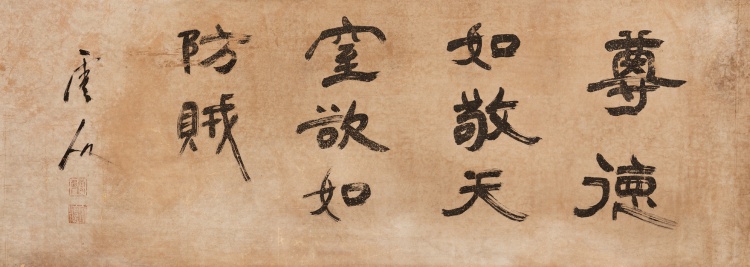 尊德
如敬天
窒欲如
防賊
雲石